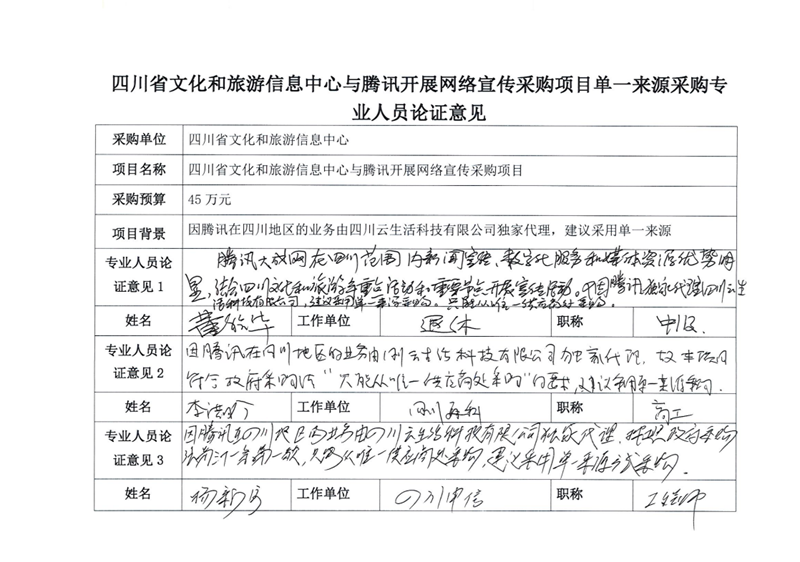 四川省文化和旅游信息中心与腾讯开展网络宣传采购项目单一来源采购专
业人员论证意见
采购单位 四川省文化和旅游信息中心
项目名称 四川省文化和旅游信息中心与腾讯开展网络宣传采购项目
采购预算 45万元
项目背景 因腾讯在四川地区的业务由四川云生活科技有限公司独家代理，建议采用单一来源
专业人员论 腾讯大成网在四川范围内新闻宣传、数字化服务和媒体资源优势明
证意见 1 显，结合四川文化和旅游等重点活动和重要节点开展宣传活动。中国腾讯独家代理四川云生
活科技有限公司，建议采用单一来源采购。只能从唯一供应商处采购。
姓名 工作单位 退休 职称 中级
专业人员论 因腾讯在四川地区的业务由四川云生活科技有限公司独家代理，故本项目
证意见 2 符合政府采购法“只能从唯一供应商处采购”的要求，建议采用单一来源采购。
姓名 工作单位 职称 高工
专业人员论 因腾讯在四川地区的业务由四川云生活科技有限公司独家代理，政府采购
证意见 3 法第三十一条第一款，只能从唯一供应商处采购，建议采用单一来源方式采购。
姓名 工作单位 职称 工程师